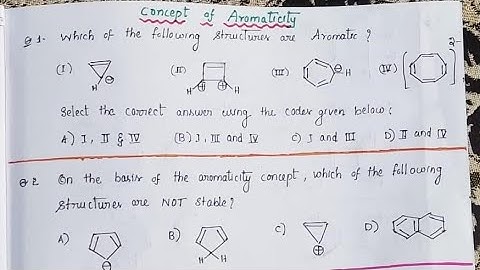 Concept of Aromaticity
Q 1- Which of the following structures are Aromatic ?
(I) (II) (III) (IV) 2-
⊖ H
H ⊕ ⊕ H
⊖ H
Select the correct answer using the codes given below :
A) I, II & IV (B) I, III and IV C) I and III D) II and IV
Q 2 On the basis of the aromaticity concept, which of the following
structures are NOT stable ?
A) B) C) D)
⊖ H H ⊕